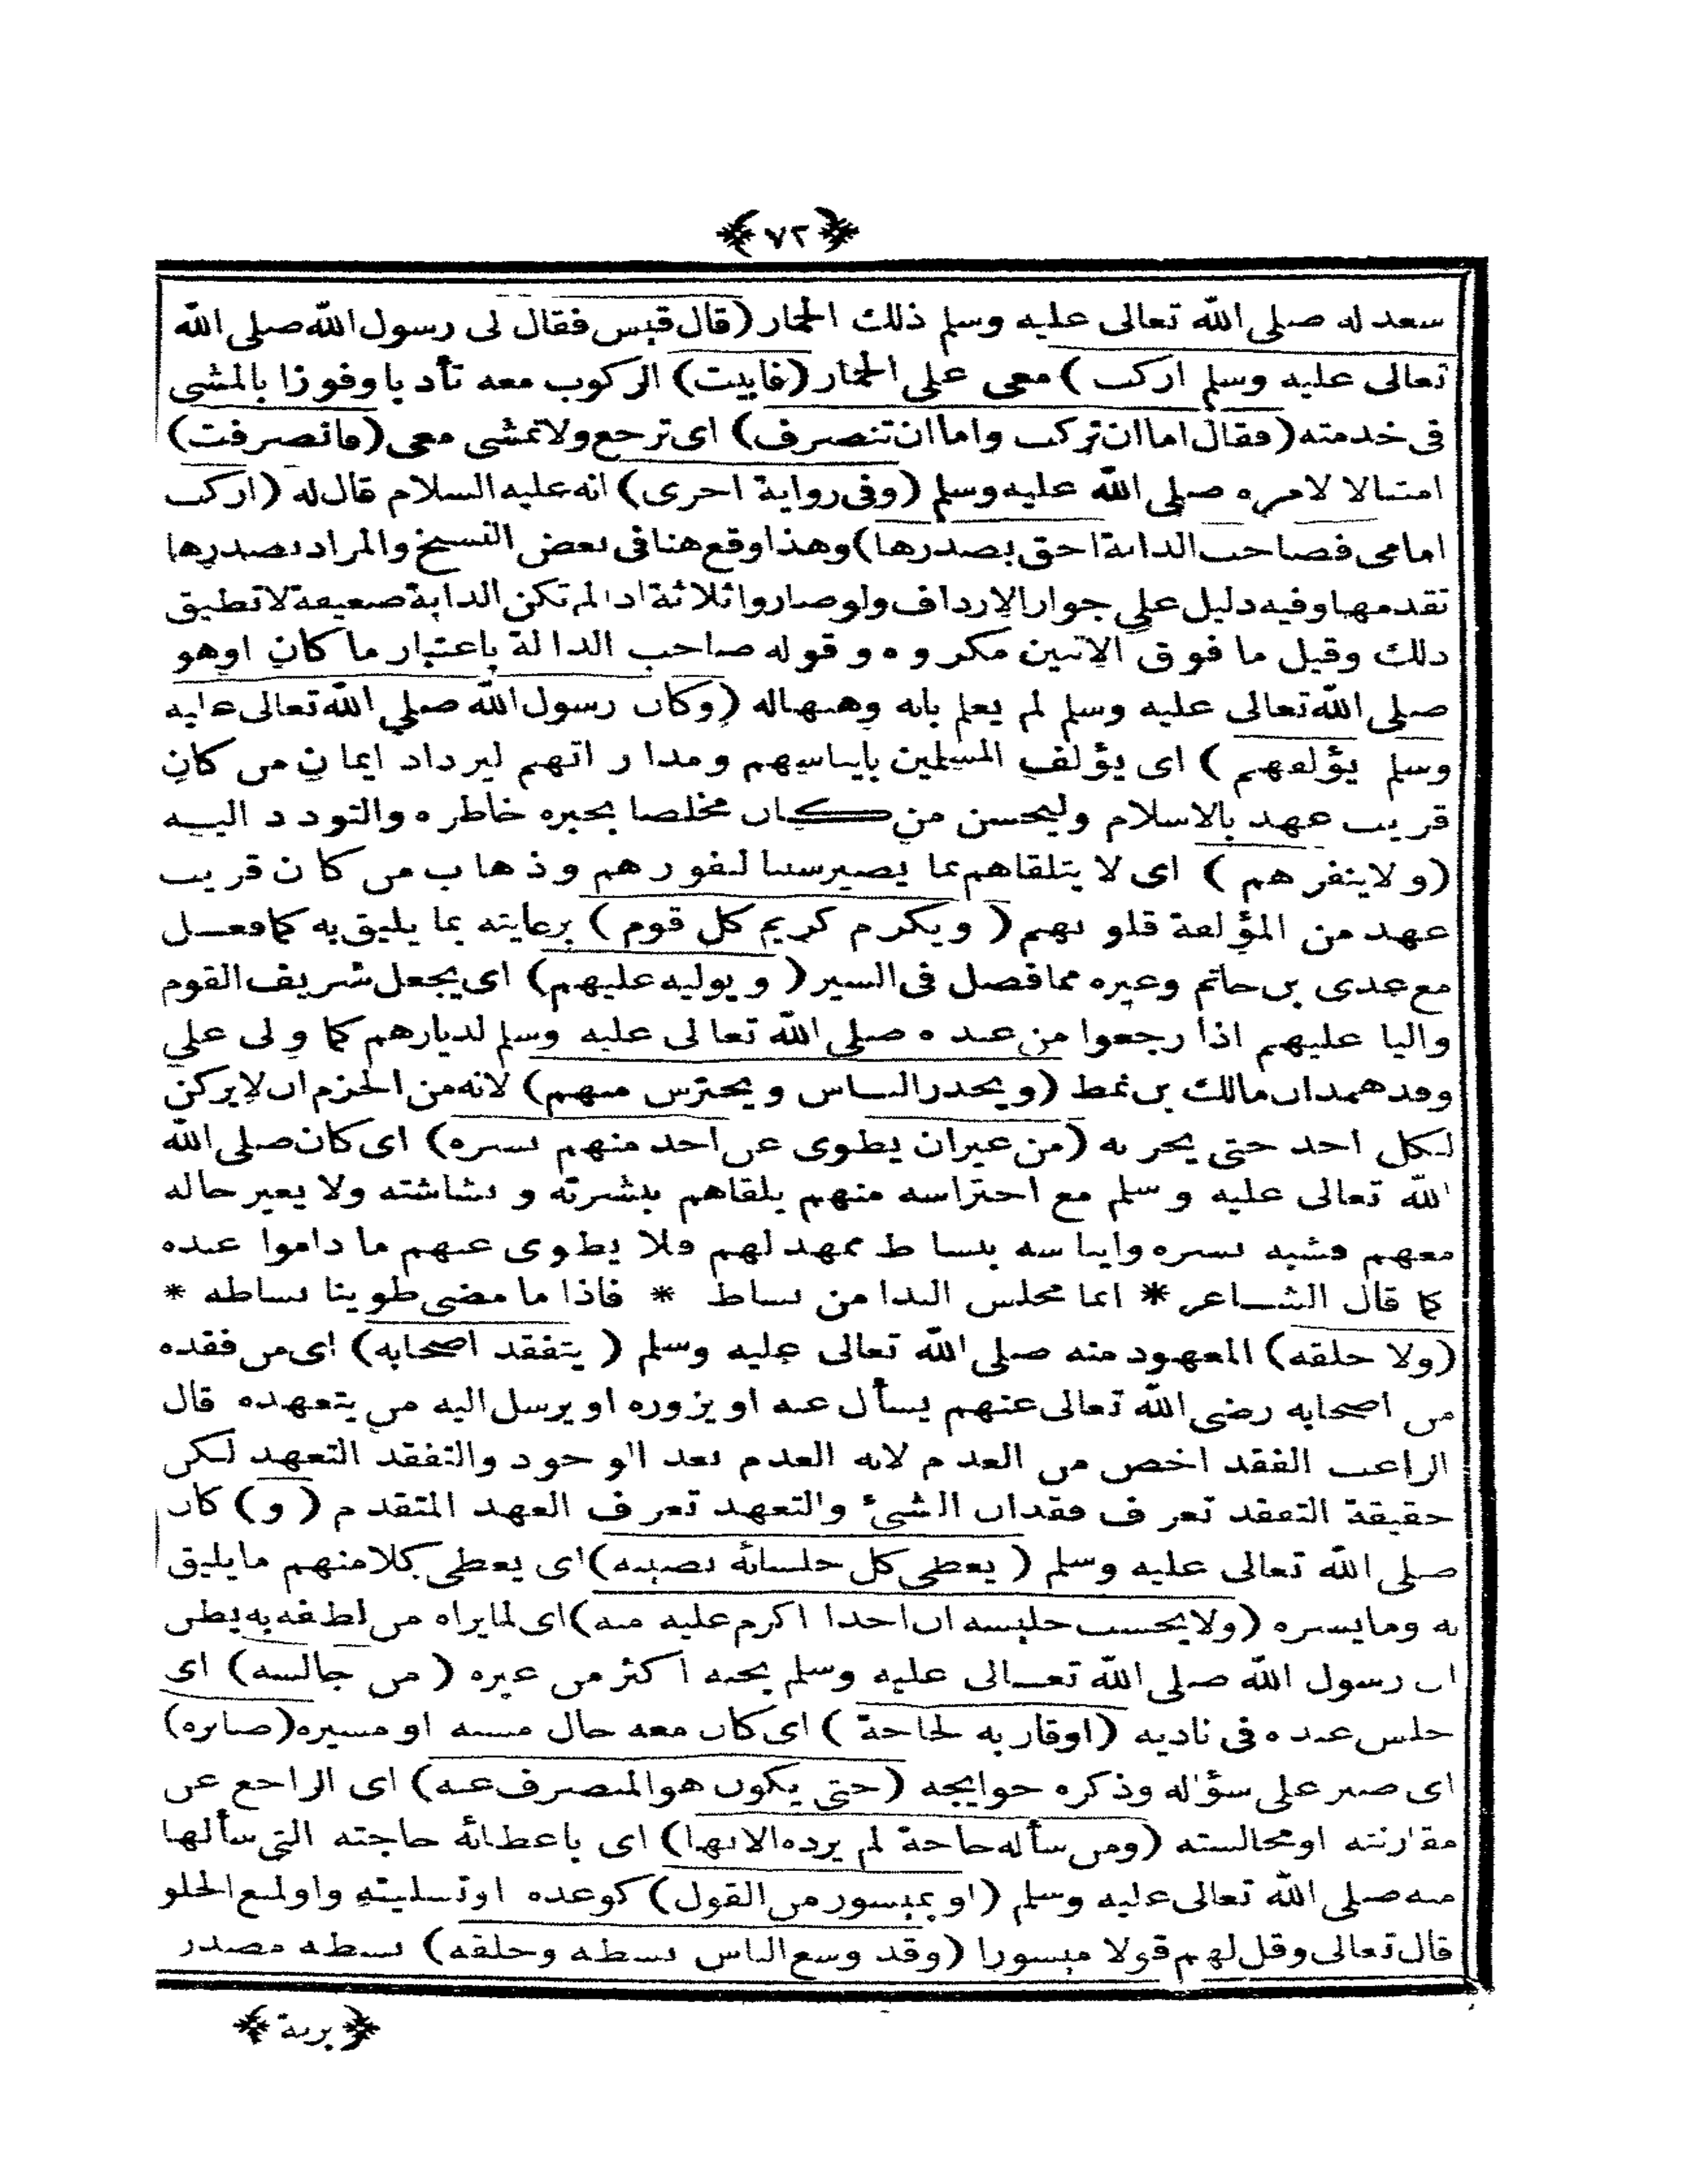 ﴿٧٢﴾
سعد له صلى الله تعالى عليه وسلم ذلك الحمار (قال قيس فقال لى رسول الله صلى الله
تعالى عليه وسلم اركب) معى على الحمار (فابيت) الركوب معه تأدبا وفوزا بالمشى
فى خدمته (فقال اما ان تركب واما ان تنصرف) اى ترجع ولا تمشى معى (فانصرفت)
امتثالا لامره صلى الله عليه وسلم (وفى رواية اخرى) انه عليه السلام قال له (اركب
امامى فصاحب الدابة احق بصدرها) وهذا وقع هنا فى بعض النسخ والمراد بصدرها
تقدمها وفيه دليل على جواز الارداف ولو صاروا ثلاثة اذا لم تكن الدابة ضعيفة لا تطيق
ذلك وقيل ما فوق الاثنين مكروه وقوله صاحب الدابة باعتبار ما كان او هو
صلى الله تعالى عليه وسلم لم يعلم بانه وهبها له (وكان رسول الله صلى الله تعالى عليه
وسلم يؤلفهم) اى يؤلف المسلمين بايناسهم ومداراتهم ليزداد ايمان من كان
قريب عهد بالاسلام وليحسن من كان مخلصا بجبره خاطره والتودد اليه
(ولا ينفرهم) اى لا يتلقاهم بما يصير سببا لنفورهم وذهاب من كان قريب
عهد من المؤلفة قلوبهم (ويكرم كريم كل قوم) برعايته بما يليق به كما فعل
مع عدى بن حاتم وغيره مما فصل فى السير (ويوليه عليهم) اى يجعل شريف القوم
واليا عليهم اذا رجعوا من عنده صلى الله تعالى عليه وسلم لديارهم كما ولى على
وفد همدان مالك بن نمط (ويحذر الناس ويحترس منهم) لانه من الحزم ان لا يركن
لكل احد حتى يجربه (من غير ان يطوى عن احد منهم بشره) اى كان صلى الله
الله تعالى عليه وسلم مع احتراسه منهم يلقاهم ببشرته وبشاشته ولا يغير حاله
معهم فشبه بشره وايناسه ببساط ممهد لهم فلا يطوى عنهم ما داموا عنده
كما قال الشاعر * انما مجلس الندا من بساط * فاذا ما مضى طوينا بساطه *
(ولا خلقه) المعهود منه صلى الله تعالى عليه وسلم (يتفقد اصحابه) اى من فقده
من اصحابه رضى الله تعالى عنهم يسأل عنه او يزوره او يرسل اليه من يتعهده قال
الراغب الفقد اخص من العدم لانه العدم بعد الوجود والتفقد التعهد لكن
حقيقة التفقد تعرف فقدان الشئ والتعهد تعرف العهد المتقدم (و) كان
صلى الله تعالى عليه وسلم (يعطى كل جلسائه نصيبه) اى يعطى كلا منهم ما يليق
به وما يسره (ولا يحسب جليسه ان احدا اكرم عليه منه) اى لما يراه من لطفه به يظن
ان رسول الله صلى الله تعالى عليه وسلم يحبه اكثر من غيره (من جالسه) اى
جلس عنده فى ناديه (او قاربه لحاجة) اى كان معه حال مشيه او مسيره (صابره)
اى صبر على سؤاله وذكره حوايجه (حتى يكون هو المنصرف عنه) اى الراجع عن
مقارنته او مجالسته (ومن سأله حاجة لم يرده الا بها) اى باعطائه حاجته التى سألها
منه صلى الله تعالى عليه وسلم (او بميسور من القول) كوعده او تسليته
قال تعالى وقل لهم قولا ميسورا (وقد وسع الناس بسطه وخلقه) بسطه مصدر
﴿برية﴾